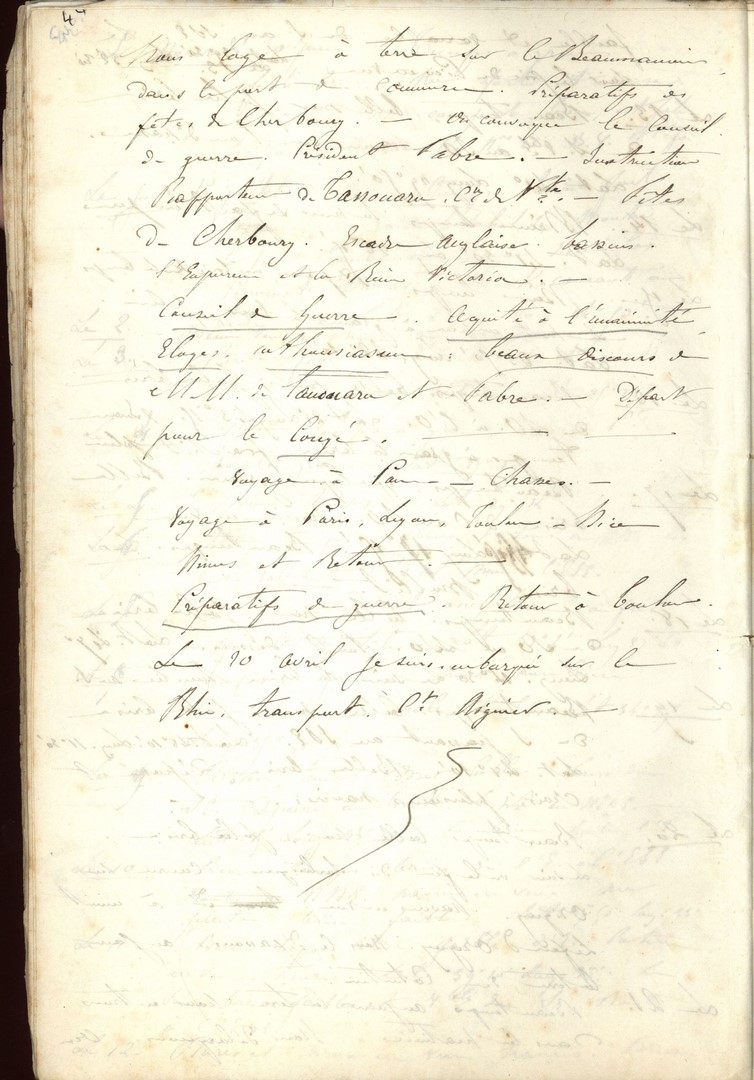 4
Nous loge à terre sur le Beaumanoir
dans le port de commerce. Préparatifs des
fêtes de Cherbourg. — On convoque le Conseil
de guerre. Président Fabre. — Instruction
Rapporteur de Tassouaru, de — Fêtes
de Cherbourg. Escadre anglaise. bassins.
l'Empereur et la Reine Victoria. —
Conseil de Guerre. Acquité à l'unanimité
Eloges, enthousiasme : beaux discours de
MM. de et Fabre. — Départ
pour le Congé. —
Voyage à Pau — Chasses. —
Voyage à Paris, Lyon, Toulon — Nice
Nimes et Retour. —
Préparatifs de guerre. Retour à Toulon.
Le 20 avril je suis embarqué sur le
Rhin, transport, Ct